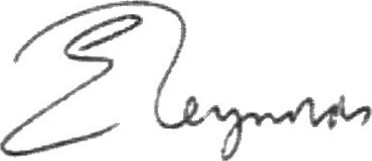 E Reynolds